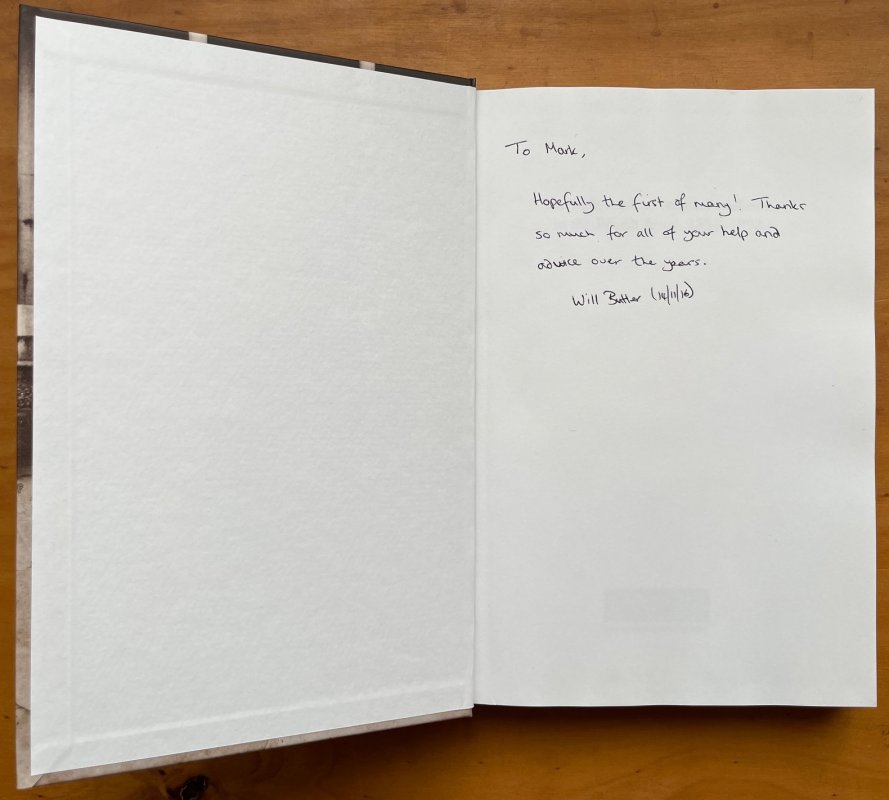 To Mark,
Hopefully the first of many! Thanks
so much for all of your help and
advice over the years.
Will Butler (14/11/16)